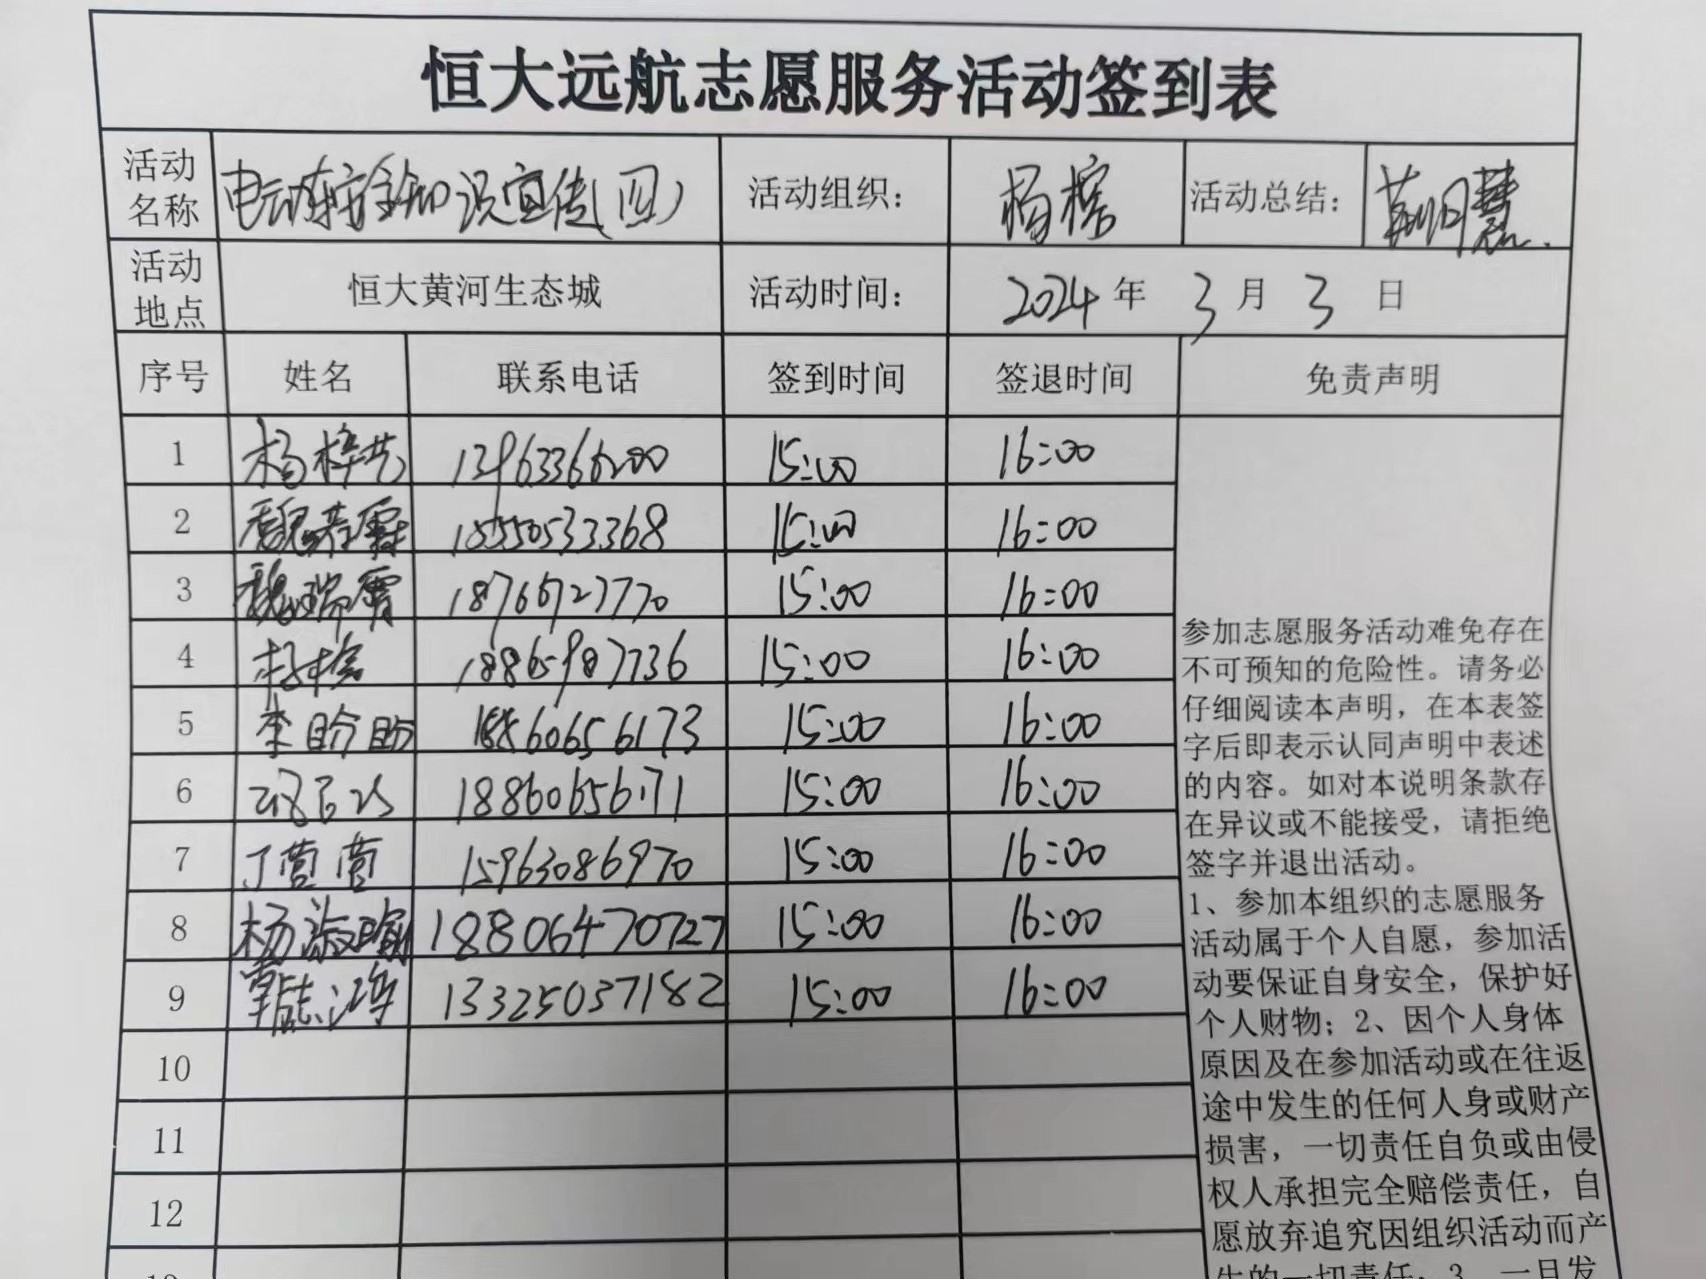 恒大远航志愿服务活动签到表
活动名称 电动车安全知识宣传(四) 活动组织: 杨榕 活动总结:
活动地点 恒大黄河生态城 活动时间: 2024年3月3日
序号 姓名 联系电话 签到时间 签退时间 免责声明
1 杨梓艺 13963366200 15:00 16:00
2 魏若霖 18550533368 15:00 16:00
3 魏瑞霄 18766727770 15:00 16:00
4 18865987736 15:00 16:00
5 李盼盼 18860656173 15:00 16:00
6 18860656171 15:00 16:00
7 丁营营 15963086970 15:00 16:00
8 杨淑瑜 18806470727 15:00 16:00
9 13325037182 15:00 16:00
10
11
12
参加志愿服务活动难免存在
不可预知的危险性。请务必
仔细阅读本声明，在本表签
字后即表示认同声明中表述
的内容。如对本说明条款存
在异议或不能接受，请拒绝
签字并退出活动。
1、参加本组织的志愿服务
活动属于个人自愿，参加活
动要保证自身安全，保护好
个人财物；2、因个人身体
原因及在参加活动或在往返
途中发生的任何人身或财产
损害，一切责任自负或由侵
权人承担完全赔偿责任，自
愿放弃追究因组织活动而产
生的一切责任；3、一旦发